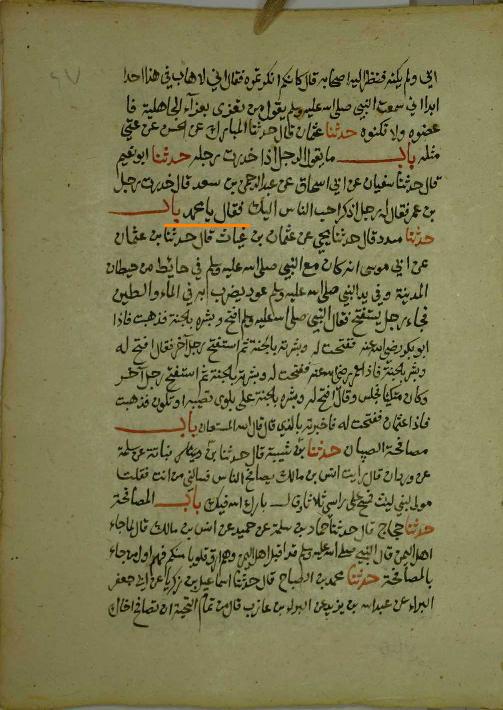 ابي ولم يكنه فنظر اليه اصحابه قال كانكم انكرتموه فقال اني لا هاب في هذا احدا
ابدا اني سمعت النبي صلى الله عليه وسلم يقول من تعزى بعزاء الجاهلية فا
عضوه ولا تكنوه حدثنا عثمان قال حدثنا المبارك عن الحسن عن عتي
مثله باب ما يقول الرجل اذا خدرت رجله حدثنا ابو نعيم
قال حدثنا سفيان عن ابي اسحاق عن عبد الرحمن بن سعد قال خدرت رجل
بن عمر فقال له رجل اذكر احب الناس اليك فقال يا محمد باب
حدثنا مسدد قال حدثنا يحيى عن عثمان بن غياث قال حدثنا بن عثمان
عن ابي موسى انه كان مع النبي صلى الله عليه وسلم في حائط من حيطان
المدينة وفي يد النبي صلى الله عليه وسلم عود يضرب به في الماء والطين
فجاء رجل يستفتح فقال النبي صلى الله عليه وسلم افتح وبشره بالجنة فذهبت فاذا
ابو بكر رضي الله عنه ففتحت له وبشرته بالجنة ثم استفتح رجل آخر فقال افتح له
وبشره بالجنة فاذا عمر رضي الله عنه ففتحت له وبشرته بالجنة ثم استفتح رجل آخر
وكان متكيا فجلس وقال افتح له وبشره بالجنة على بلوى تصيبه او تكون فذهبت
فاذا عثمان ففتحت له فاخبرته بالذي قال قال الله المستعان باب
مصافحة الصبيان حدثنا بن شيبة قال حدثنا بن نباتة عن سلمة
عن وردان قال رايت انس بن مالك يصافح الناس فسالني من انت فقلت
مولى لبني ليث فمسح على راسي ثلاثا وقال بارك الله فيك باب المصافحة
حدثنا حجاج قال حدثنا حماد بن سلمة عن حميد عن انس بن مالك قال لما جاء
اهل اليمن قال النبي صلى الله عليه وسلم قد اقبل اهل اليمن وهم ارق قلوبا منكم فهم اول من جاء
بالمصافحة حدثنا محمد بن الصباح قال حدثنا اسماعيل بن زكريا عن ابي جعفر
البراء عن عبد الله بن يزيد عن البراء بن عازب قال من تمام التحية ان تصافح اخاك